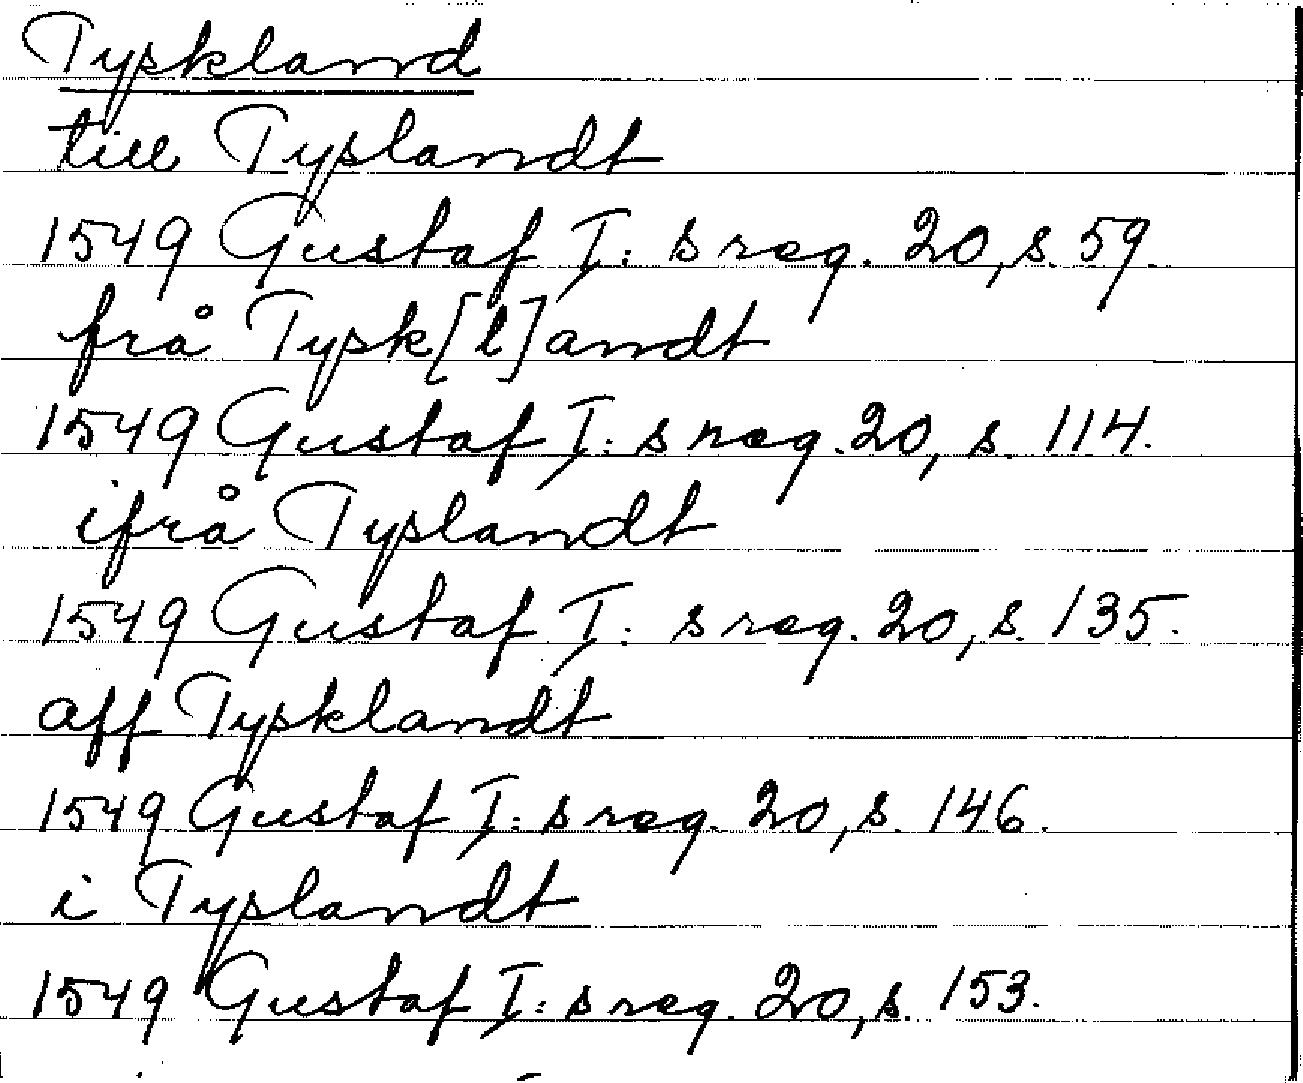 Tyskland
till Tyslandt
1549 Gustaf I:s reg. 20, s. 59.
frå Tysk[l]andt
1549 Gustaf I:s reg. 20, s. 114.
ifrå Tyslandt
1549 Gustaf I:s reg. 20, s. 135.
aff Tysklandt
1549 Gustaf I:s reg. 20, s. 146.
i Tyslandt
1549 Gustaf I:s reg. 20, s. 153.